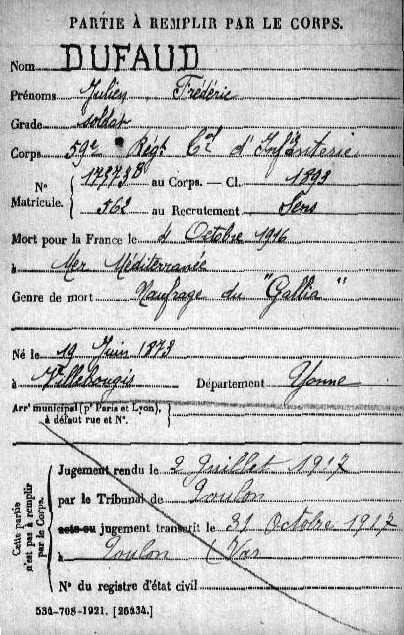 PARTIE À REMPLIR PAR LE CORPS.
Nom DUFAUD
Prénoms Julien Frédéric
Grade soldat
Corps 59e Régt Cal d'Infanterie
No Matricule. 17373B au Corps. — Cl. 1893
562 au Recrutement Sens
Mort pour la France le 4 Octobre 1916
à Mer Méditerranée
Genre de mort Naufrage du "Gallia"
Né le 19 Juin 1873
à Villebougis Département Yonne
Arrt municipal (pr Paris et Lyon), à défaut rue et No.
Cette partie n'est pas à remplir par le Corps.
Jugement rendu le 2 Juillet 1917
par le Tribunal de Toulon
acte ou jugement transcrit le 31 Octobre 1917
à Toulon (Var
No du registre d'état civil
534-708-1921. [26434.]